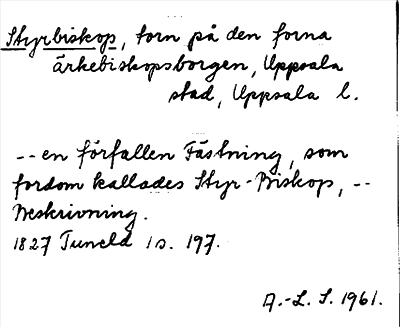 Styrbiskop, torn på den forna
ärkebiskopsborgen, Uppsala
stad, Uppsala l.
-- en förfallen Fästning, som
fordom kallades Styr-Biskop, --
Beskrivning.
1827 Tuneld 1 s. 197.
A.-L. S. 1961.